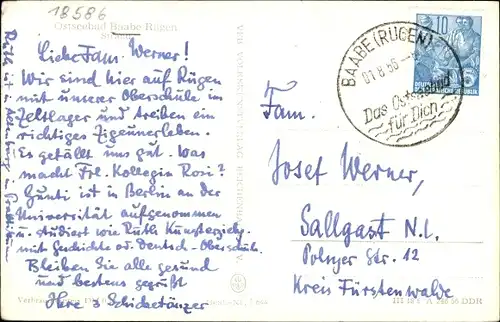 18586
Ostseebad Baabe-Rügen
Liebe Fam. Werner!
Wir sind hier auf Rügen
mit unserer Oberschule im
Zeltlager und treiben ein
richtiges Zigeunerleben.
Es gefällt uns gut. Was
macht Frl. Kollegin Rosi?
Gunti ist in Berlin an der
Universität aufgenommen
u. studiert wie Ruth Kunsterziehg.
mit Geschichte od. Deutsch-Oberschule.
Bleiben Sie alle gesund
und bestens gegrüßt
Ihre 3 Schicketänzer
Ruth ist in Altenburg in Praktikum
BAABE (RÜGEN)
01.8.56
Das Ostseebad
für Dich
10
Fam.
Josef Werner,
Sallgast N.L.
Polnyer Str. 12
Kreis Fürstenwalde
DDR